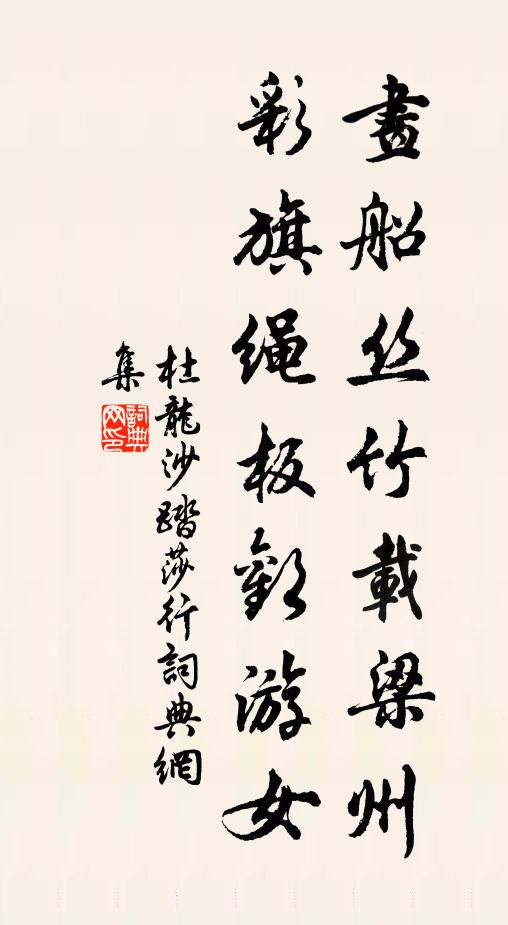 畫船丝竹載梁州
彩旗绳板歡游女
杜龍沙踏莎行詞典網
集
詞典
网印